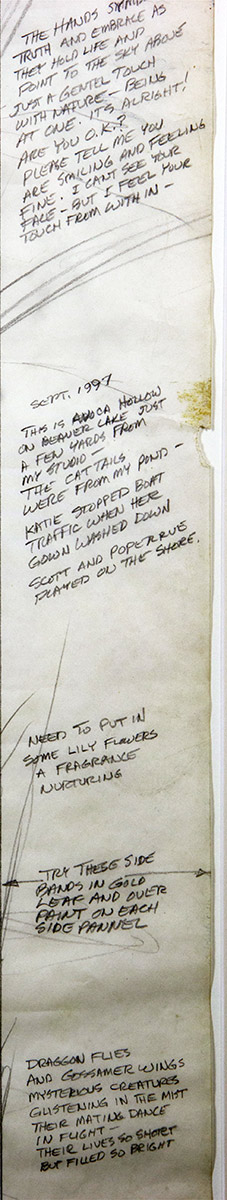 THE HANDS
TRUTH AND EMBRACE AS
THEY HOLD LIFE AND
POINT TO THE SKY ABOVE
JUST A GENTEL TOUCH
WITH NATURE - BEING
AT ONE. IT'S ALRIGHT!
ARE YOU O.K.?
PLEASE TELL ME YOU
ARE SMILING AND FEELING
FINE. I CANT SEE YOUR
FACE - BUT I FEEL YOUR
TOUCH FROM WITH IN -
SEPT. 1997
THIS IS HOLLOW
ON BEAVER LAKE JUST
A FEW YARDS FROM
MY STUDIO -
THE CATTAILS
WERE FROM MY POND -
KATIE STOPPED BOAT
TRAFFIC WHEN HER
GOWN WASHED DOWN
SCOTT AND
PLAYED ON THE SHORE.
NEED TO PUT IN
SOME LILY FLOWERS
A FRAGRANCE
NURTURING
TRY THESE SIDE
BANDS IN GOLD
LEAF AND OVER
PAINT ON EACH
SIDE PANNEL
DRAGGON FLIES
AND GOSSAMER WINGS
MYSTERIOUS CREATURES
GLISTENING IN THE MIST
THEIR MATING DANCE
IN FLIGHT -
THEIR LIVES SO SHORT
BUT FILLED SO BRIGHT